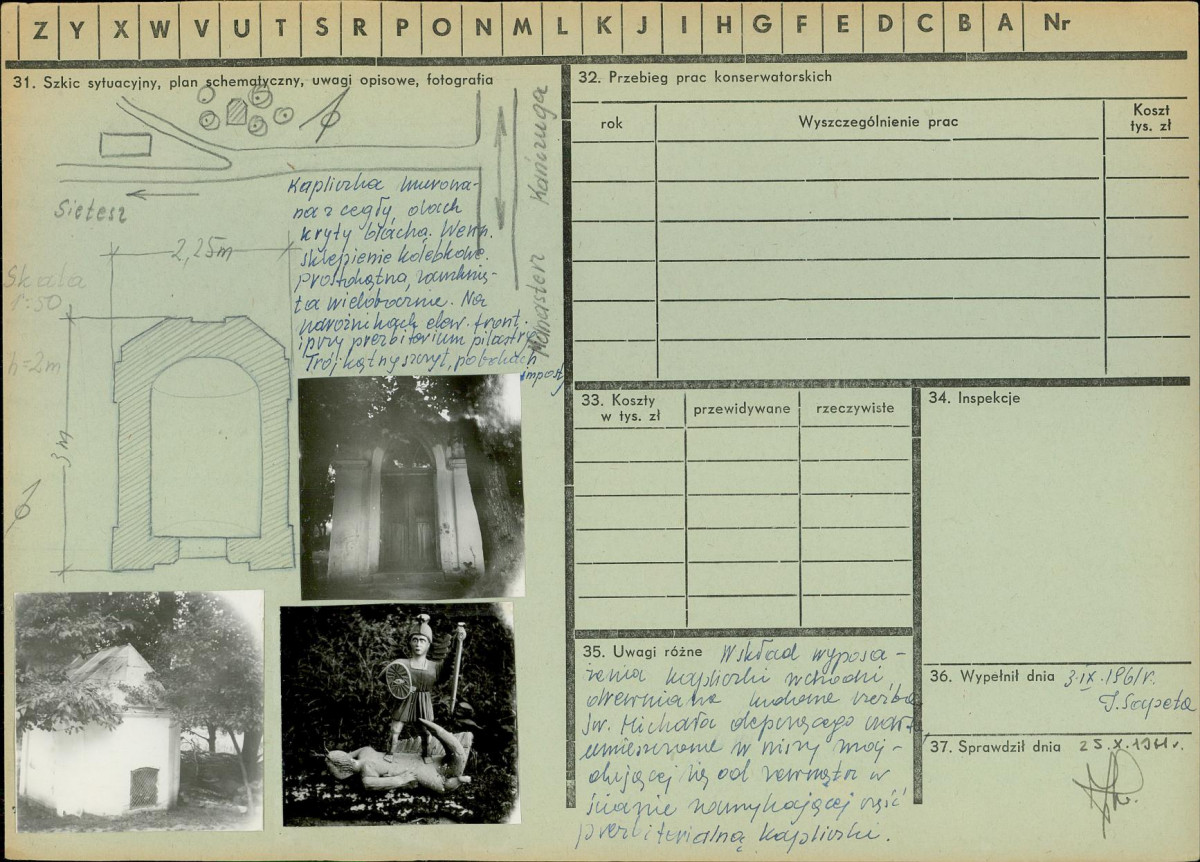 Z Y X W V U T S R P O N M L K J I H G F E D C B A Nr
31. Szkic sytuacyjny, plan schematyczny, uwagi opisowe, fotografia
Sietesz
Kańczuga
Manasterz
Kapliczka murowa-
na z cegły, dach
kryty blachą. Wewn.
sklepienie kolebkowe.
Prostokątna, zamknię-
ta wielobocznie. Na
narożnikach elew. front.
i przy prezbiterium pilastry.
Trójkątny szczyt, po bokach
imposty
2,25m
Skala
1:50
h=2m
3m
32. Przebieg prac konserwatorskich
rok
Wyszczególnienie prac
Koszt
tys. zł
33. Koszty
w tys. zł
przewidywane
rzeczywiste
34. Inspekcje
35. Uwagi różne W skład wyposa-
żenia kapliczki wchodzi
drewniana ludowa rzeźba
św. Michała depczącego czarta
umieszczone w niszy znaj-
dującej się od zewnątrz w
ścianie zamykającej część
prezbiterialną kapliczki.
36. Wypełnił dnia 3.IX.1961r.
37. Sprawdził dnia 25.X.1961r.